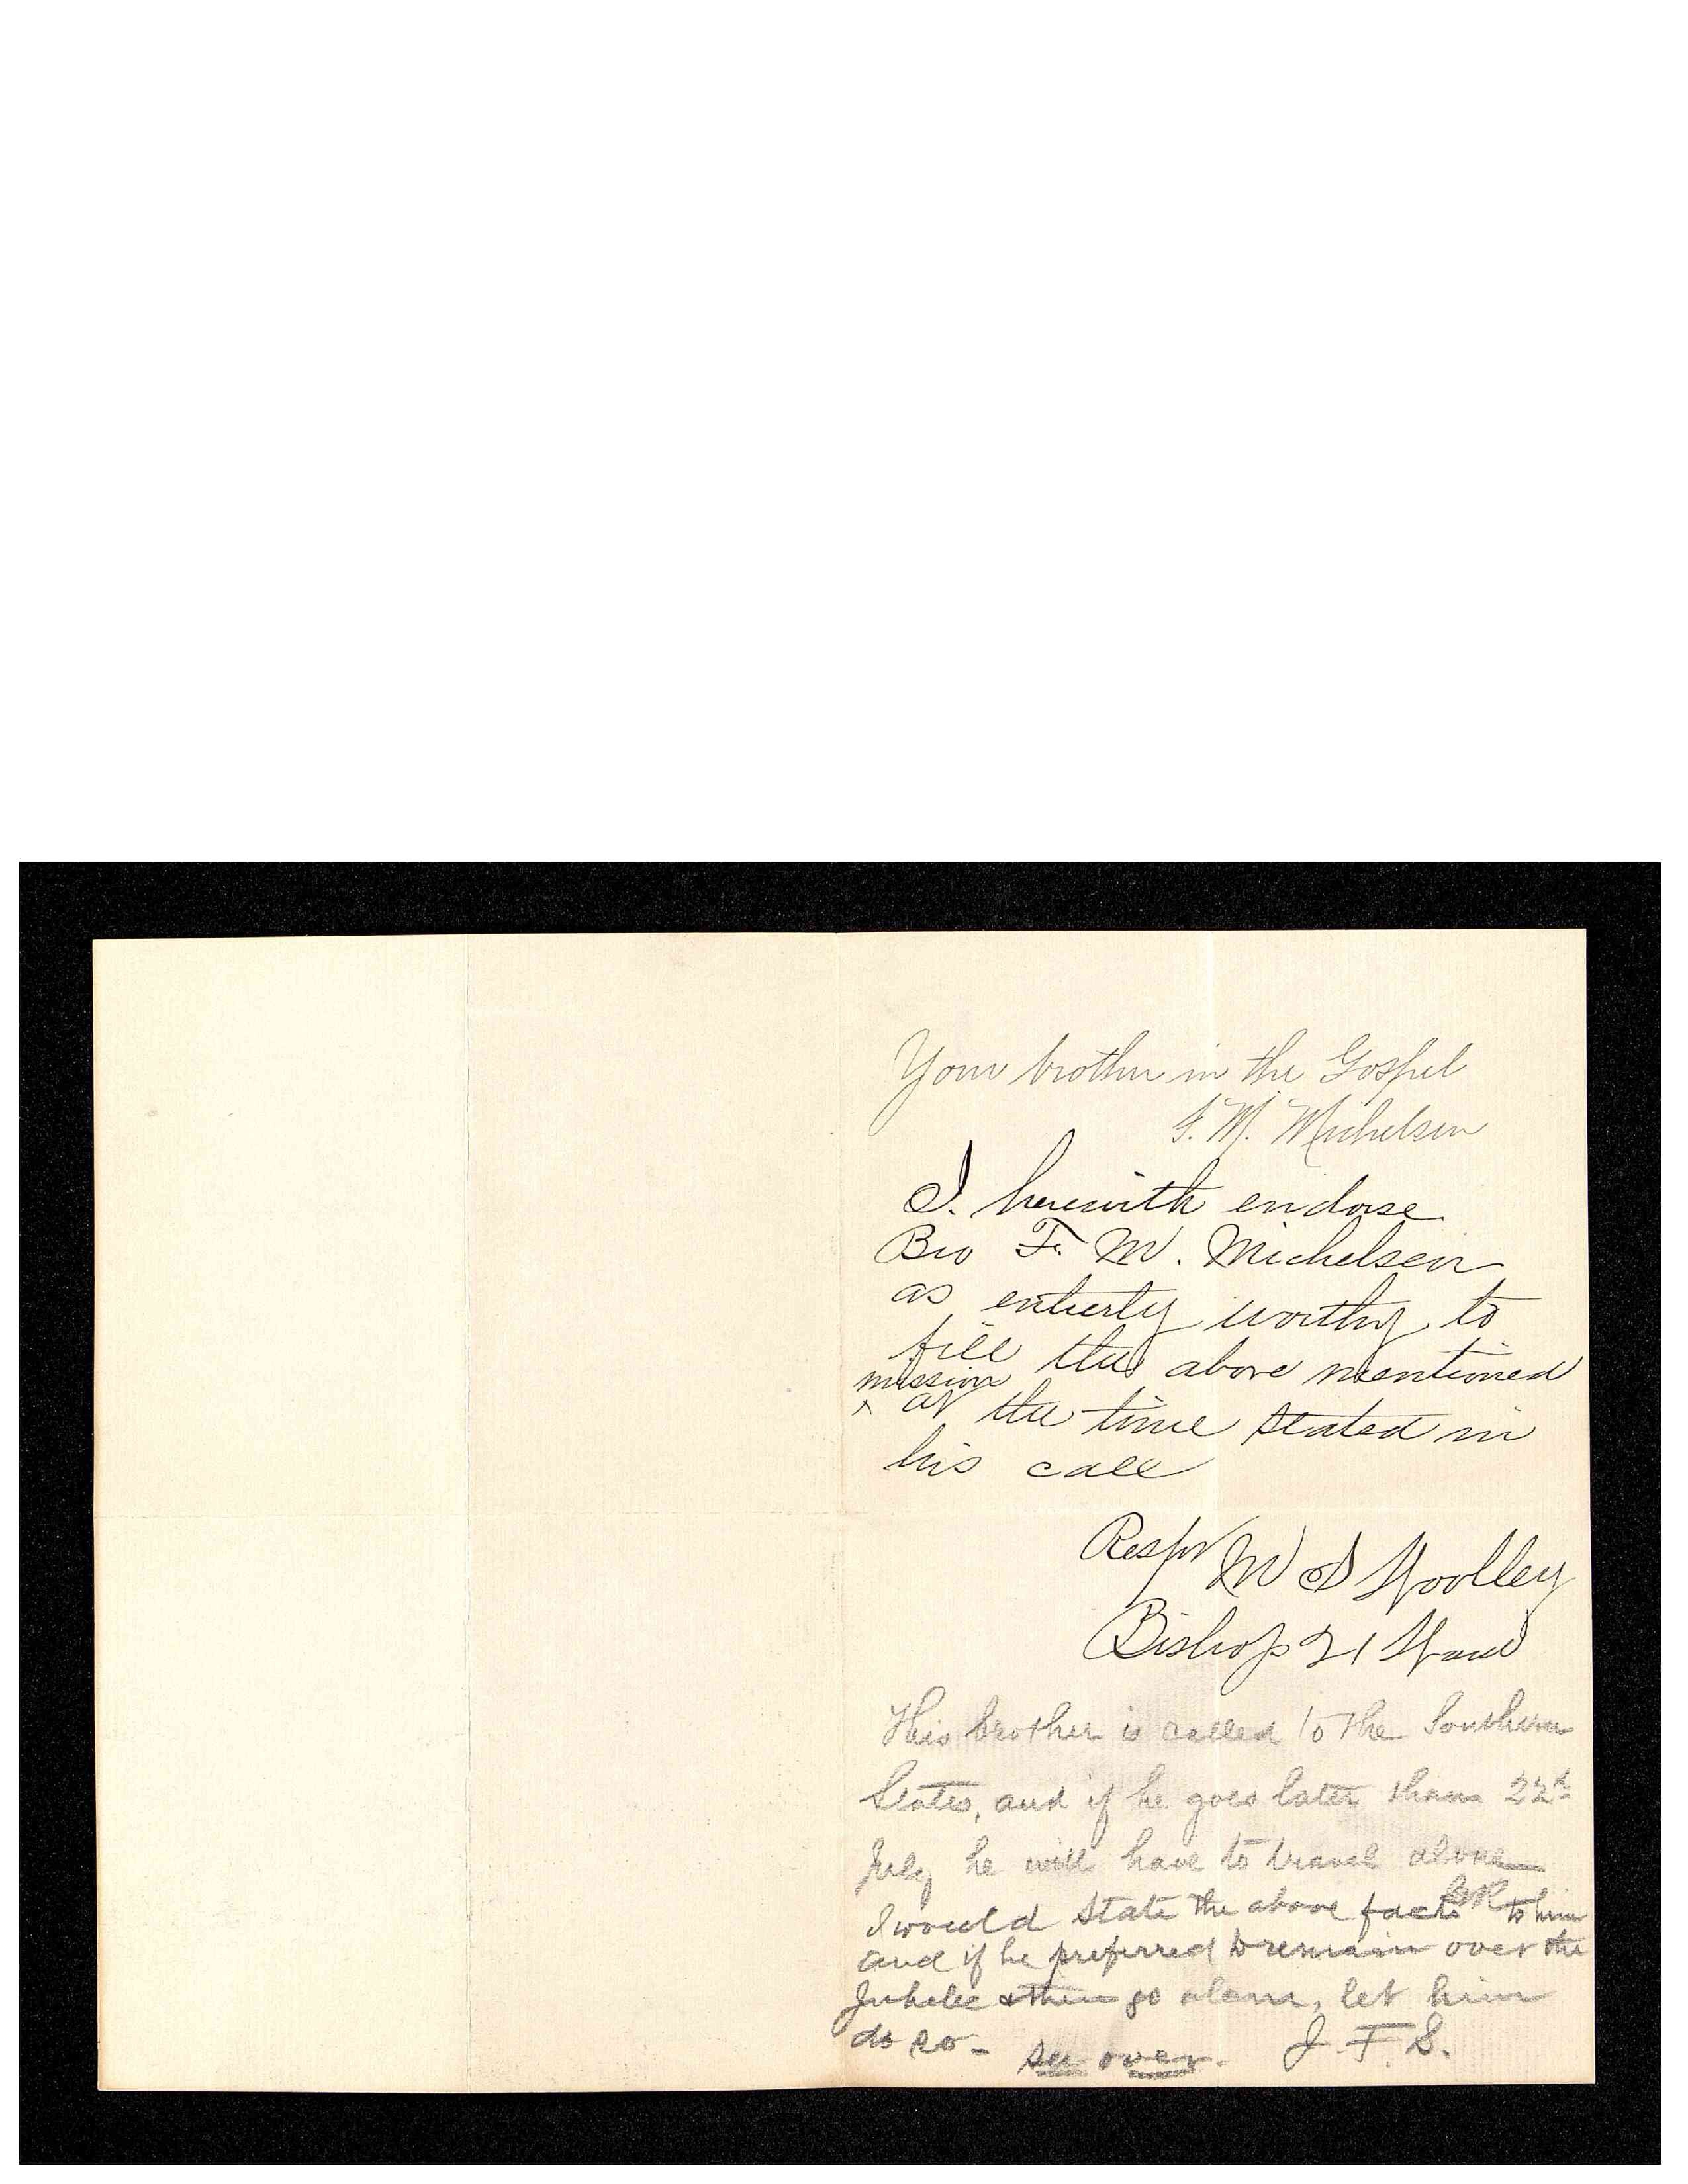 Your brother in the Gospel
F. M. Michelsen
I. herewith endorse
Bro F. M. Michelsen
as entierly worthy to
fill the above mentioned
mission
^ at the time stated in
his call
Respy M S Woolley
Bishop 21 Ward
This brother is called to the Southern
States, and if he goes later than 22d
July he will have to travel alone
GR
I would state the above facts to him
and if he preferred to remain over the
Jubilee & then go alone, let him
do so - see over. J. F. S.